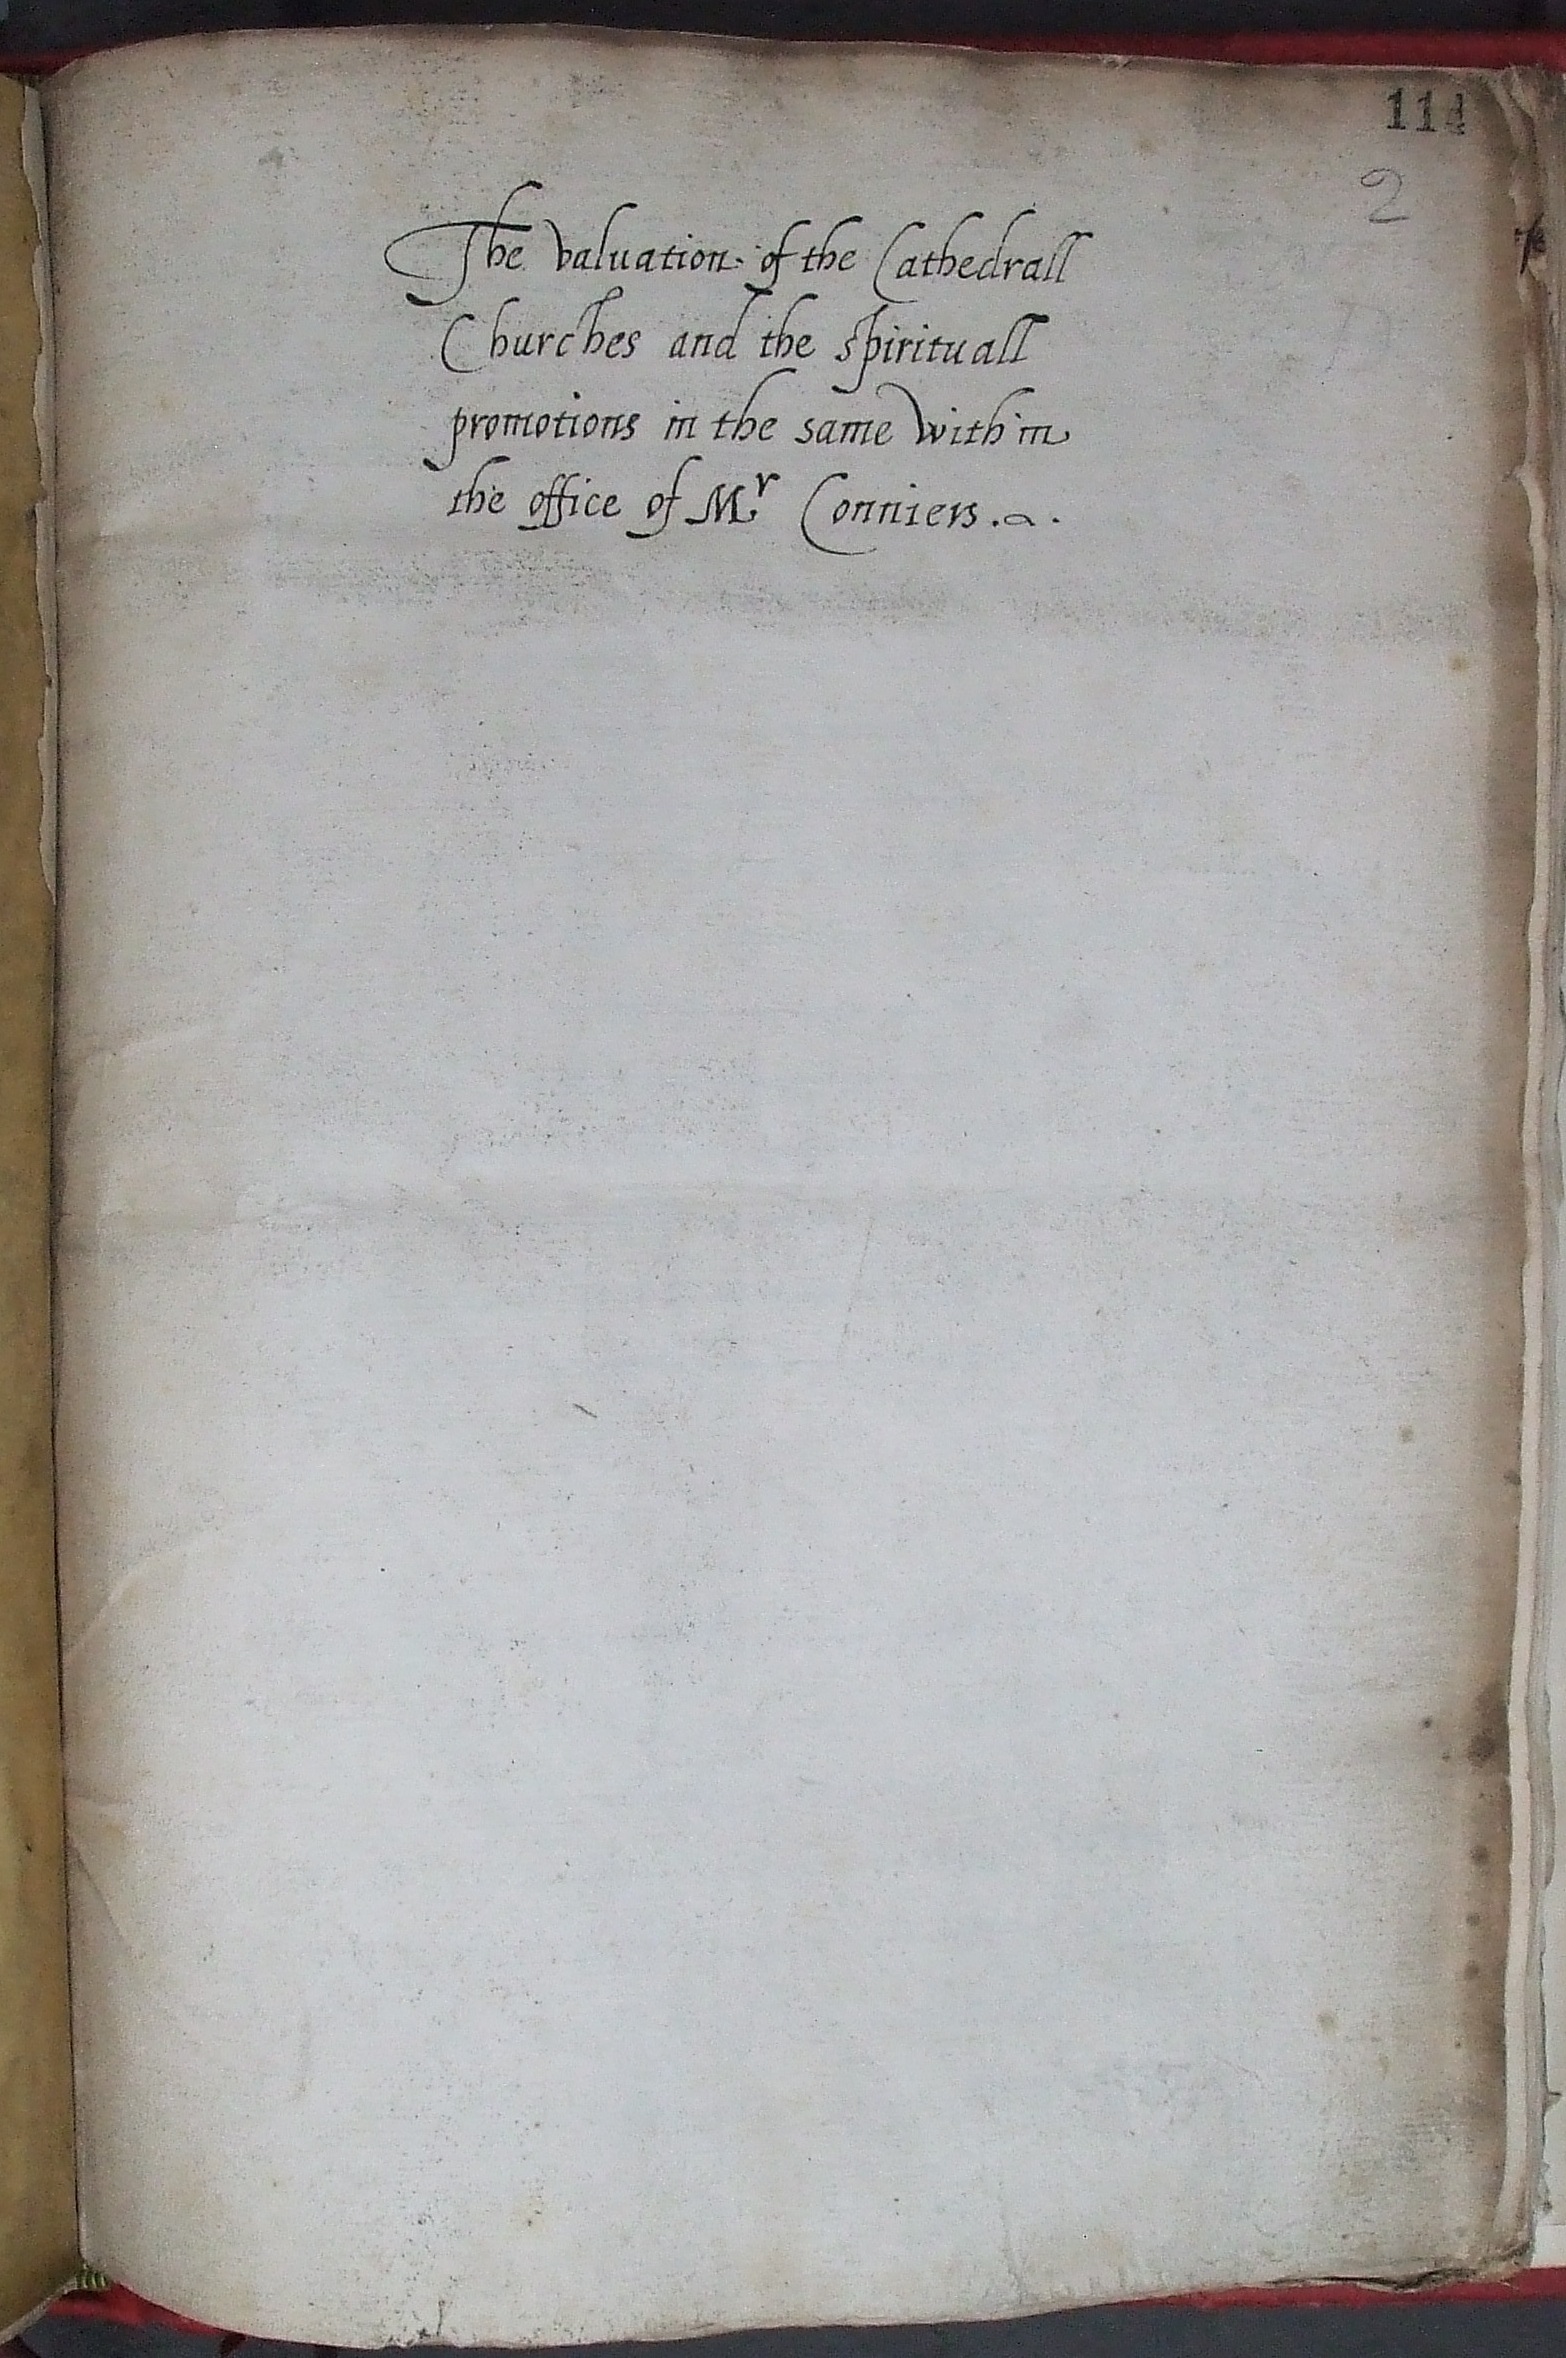 114
2
The valuation of the Cathedrall
Churches and the spirituall
promotions in the same within
the office of Mr Conniers.